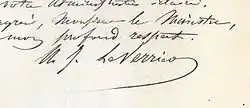 votre administration éclairée.
Monsieur le Ministre,
mon profond respect.
U. J. Le Verrier